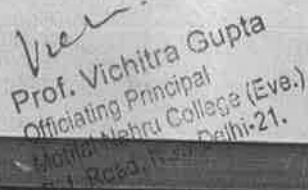 Prof. Vichitra Gupta
Officiating Principal
Motilal Nehru College (Eve.)
Road, Delhi-21.